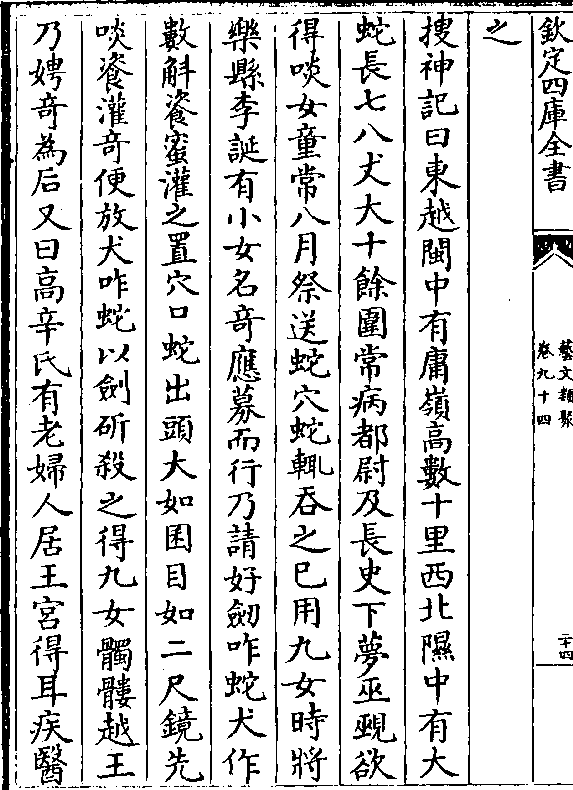 欽定四庫全書
藝文類聚
卷九十四
二十四
之
搜神記曰東越閩中有庸嶺高數十里西北隰中有大
蛇長七八丈大十餘圍常病都尉及長史下夢巫覡欲
得啖女童常八月祭送蛇穴蛇輒吞之已用九女時將
樂縣李誕有小女名竒應募而行乃請好劒咋蛇犬作
數斛餈蜜灌之置穴口蛇出頭大如囷目如二尺鏡先
啖餈灌竒便放犬咋蛇以劍斫殺之得九女髑髏越王
乃娉竒為后又曰高辛氏有老婦人居王宮得耳疾醫